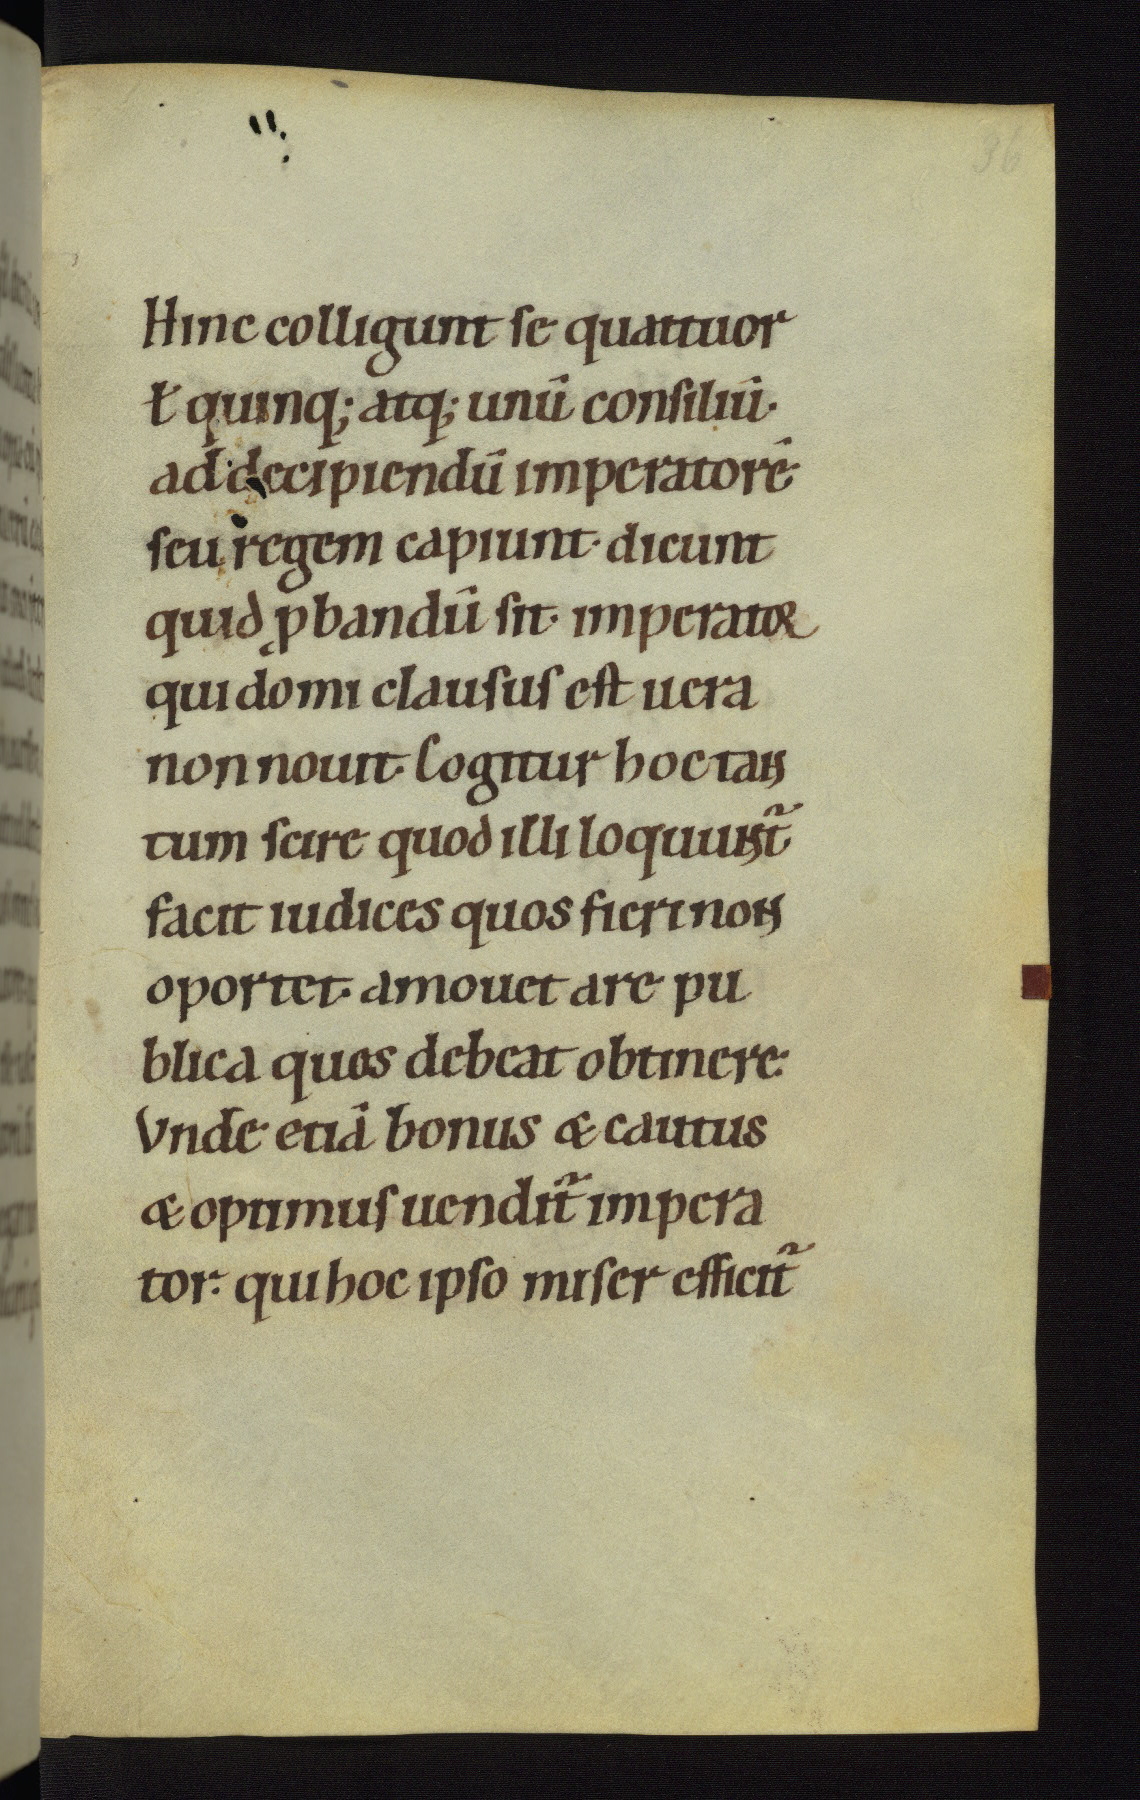 36
Hinc colligunt se quattuor
ł quinq; atq; unū consiliū·
ad decipiendū imperatorē·
seu regem capiunt· dicunt
quid ꝓbandū sit· imperator
qui domi clausus est uera
non nouit· Cogitur hoc tan
tum scire quod illi loquunt᷑
facit iudices quos fieri non
oportet· amouet a re pu
blica quos debeat obtinere·
Vnde etiā bonus & cautus
& optimus uendit᷑ impera
tor· qui hoc ipso miser efficit᷑